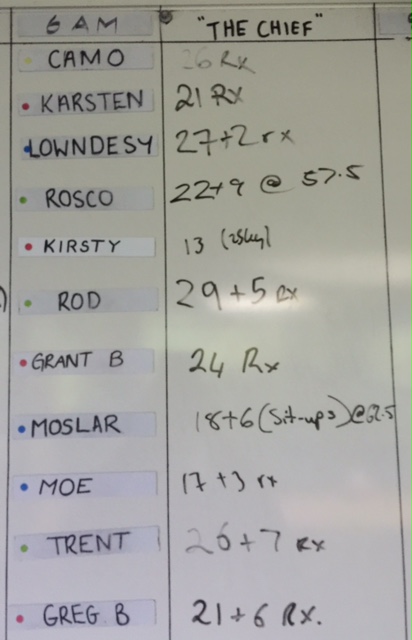 6 AM "THE CHIEF"
CAMO 26 Rx
KARSTEN 21 Rx
LOWNDESY 27+2 rx
ROSCO 22+9 @ 57.5
KIRSTY 13 (25kg)
ROD 29+5 Rx
GRANT B 24 Rx
MOSLAR 18+6 (Sit-ups) @62.5
MOE 17+3 rx
TRENT 26+7 Rx
GREG B 21+6 Rx.